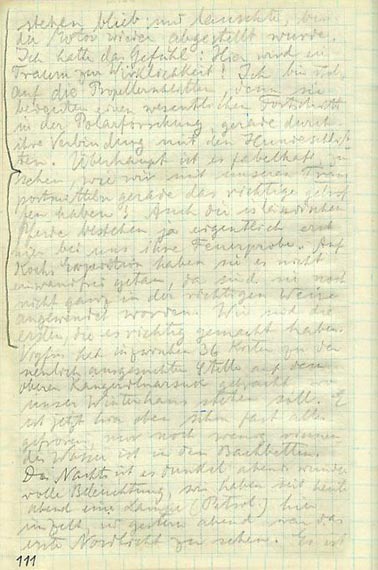 stehen blieb und lauschte, bis
der Motor wieder abgestellt wurde.
Ich hatte das Gefühl: Hier wird ein
Traum zur Wirklichkeit! Ich bin stolz
auf die Propellerschlitten, denn sie
bedeuten einen wesentlichen Fortschritt
in der Polarforschung, gerade durch
ihre Verbindung mit den Hundeschlit-
ten. Überhaupt ist es fabelhaft zu
sehen, wie wir mit unseren Trans-
portmitteln gerade das richtige getrof-
fen haben! Auch die isländischen
Pferde bestehen ja eigentlich erst
hier bei uns ihre Feuerprobe. Auf
Kochs Expedition haben sie es nicht
einwandfrei getan, da sind sie noch
nicht ganz in der richtigen Weise
angewendet worden. Wir sind die
ersten, die es richtig gemacht haben.
Vigfus hat inzwischen 36 Kisten zu der
nämlich ausgesuchten Stelle auf dem
oberen Kangerdluarsuk gebracht, wo
unser Winterhaus stehen soll. E
ist jetzt hier oben schon fast alles
gefroren, nur noch wenig rinnen
des Wasser ist in den Bachbetten.
Des Nachts ist es dunkel, abends wunder
volle Beleuchtung, wir haben seit heute
abend eine Lampe (Petrol) hier
im Zelt, und gestern abend war das
erste Nordlicht zu sehen. Es ist
111